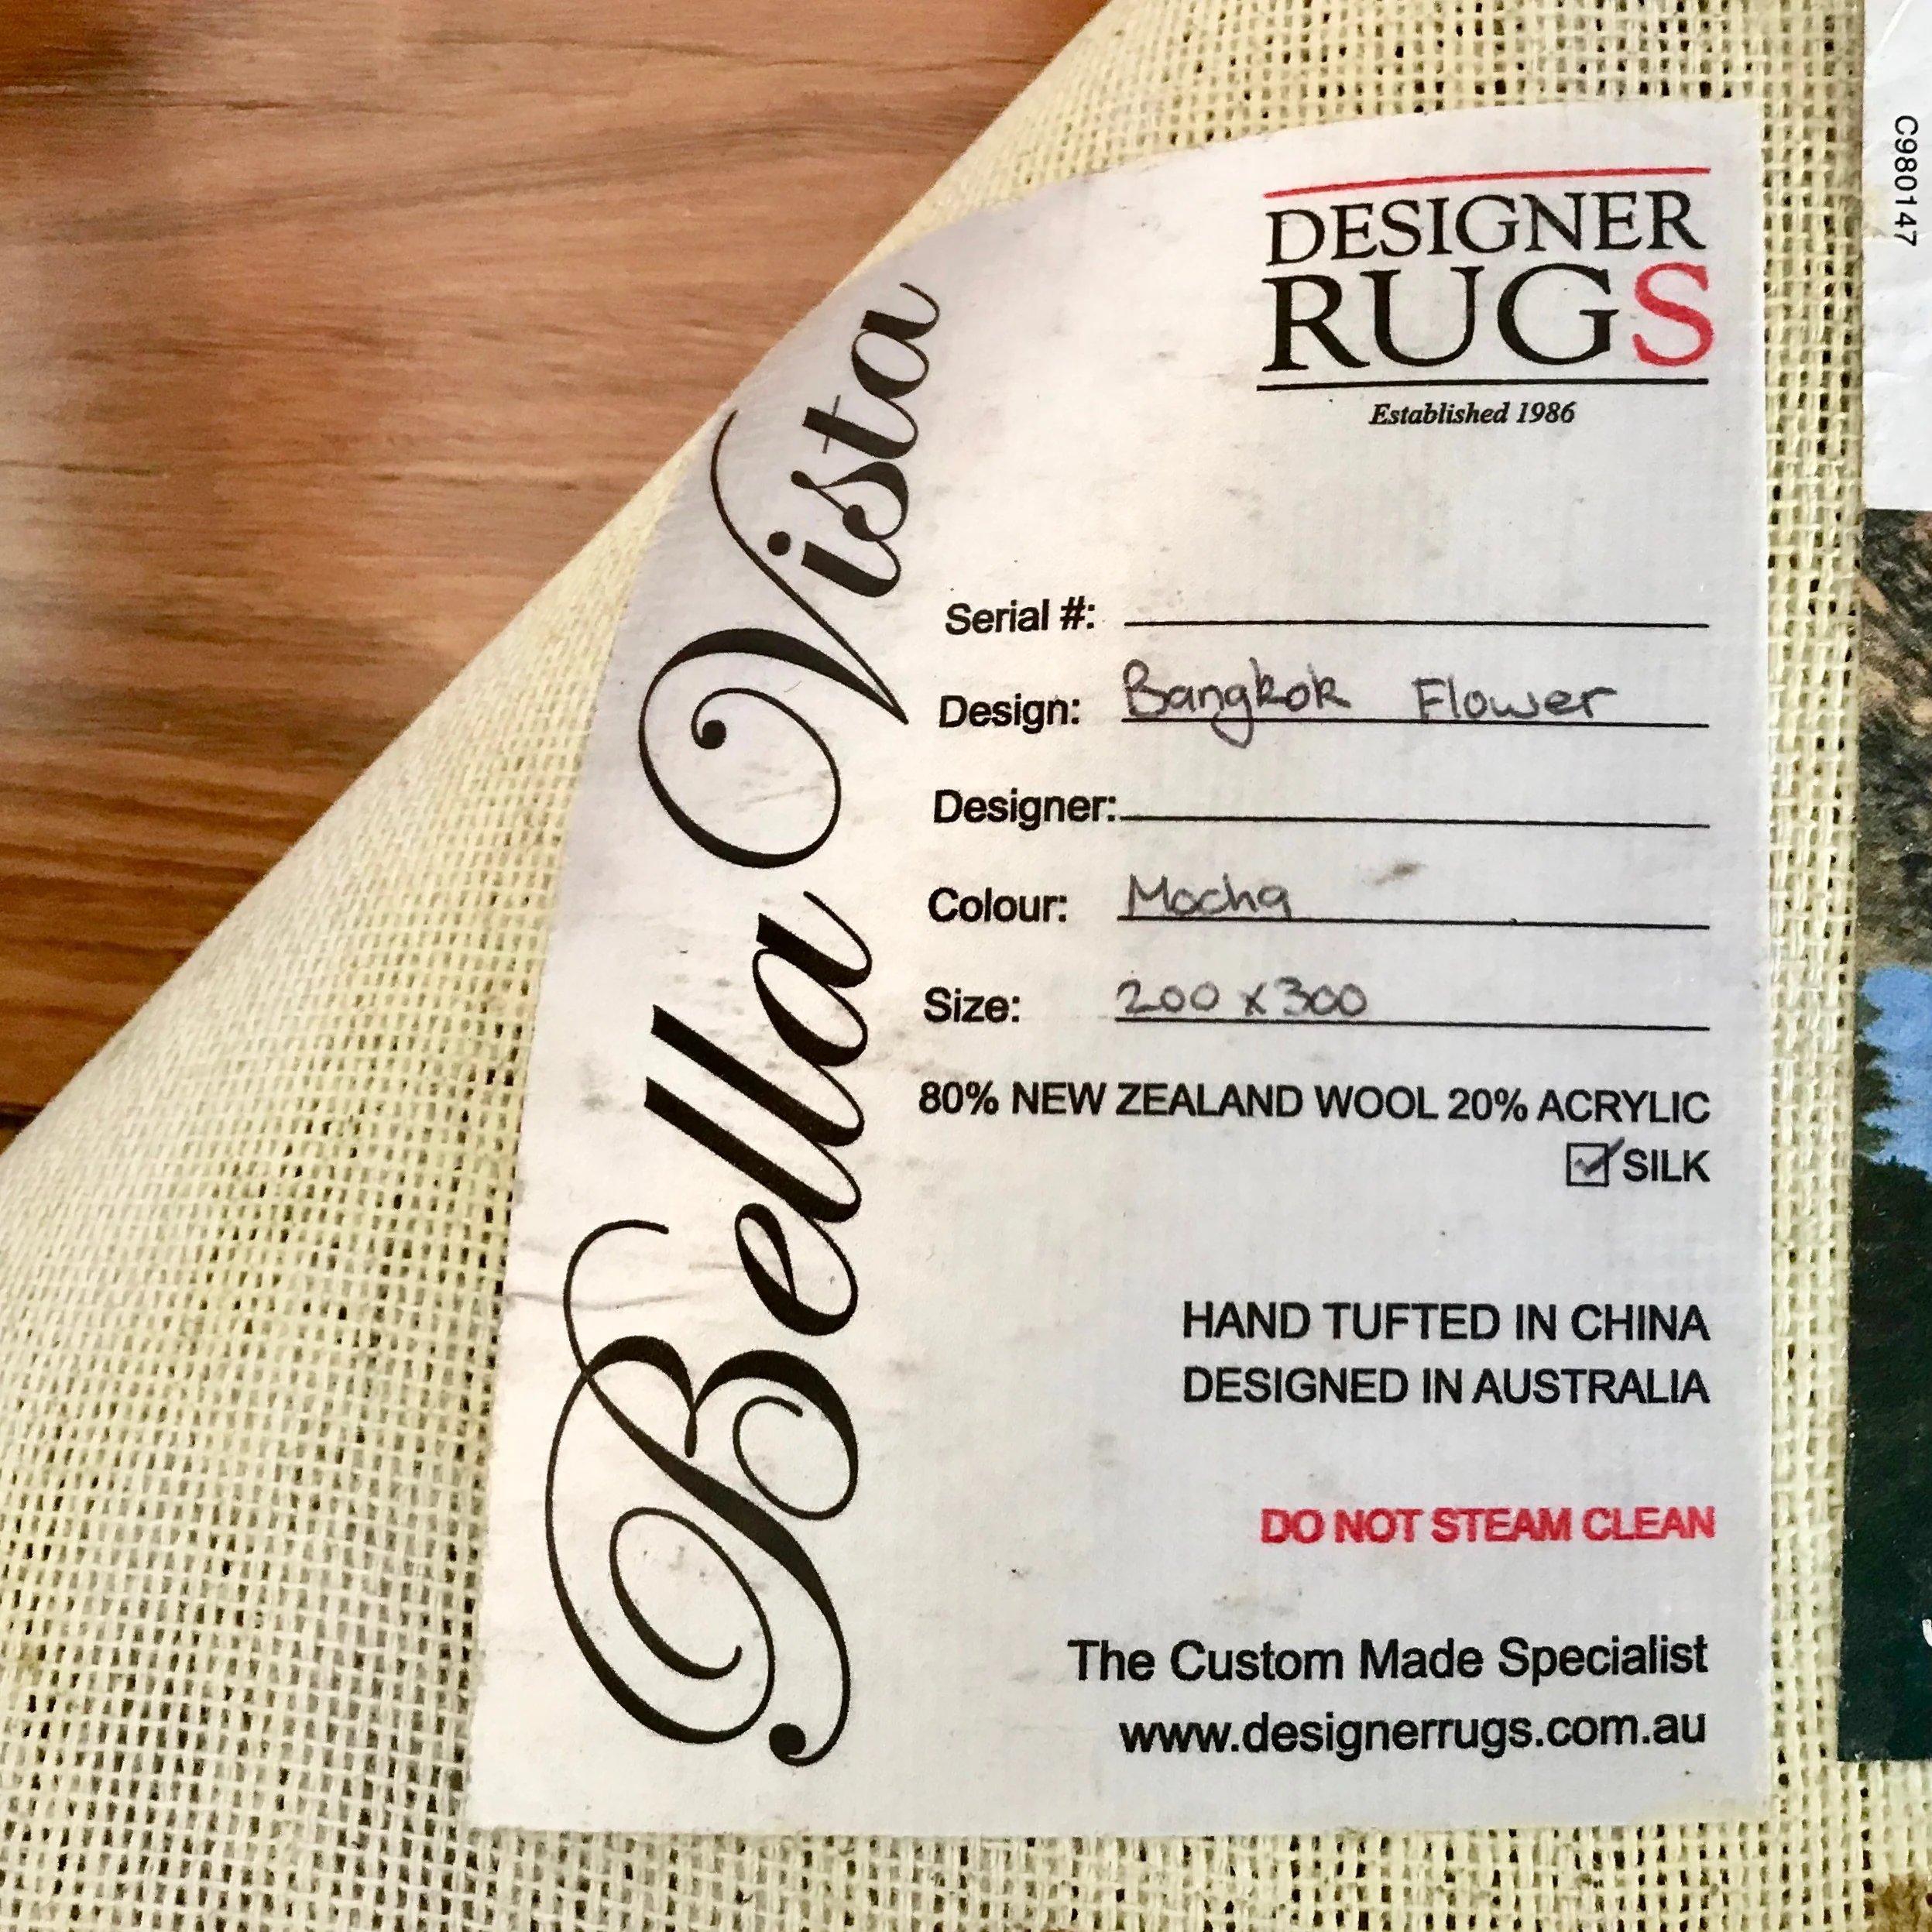 DESIGNER
RUGS
Established 1986
Bella Vista
Serial #:
Design: Bangkok Flower
Designer:
Colour: Mocha
Size: 200 x 300
80% NEW ZEALAND WOOL 20% ACRYLIC
☑ SILK
HAND TUFTED IN CHINA
DESIGNED IN AUSTRALIA
DO NOT STEAM CLEAN
The Custom Made Specialist
www.designerrugs.com.au
C980147